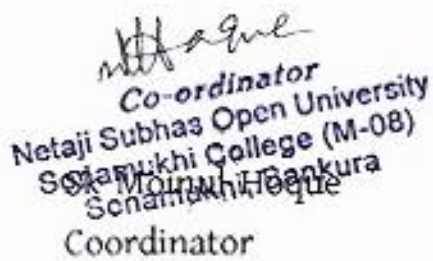 Co-ordinator
Netaji Subhas Open University
Sonamukhi College (M-08)
Sonamukhi, Bankura
Sk Moinul Hoque
Coordinator